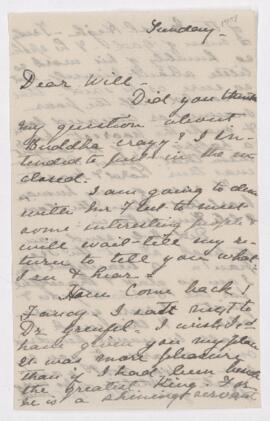 1908
Sunday-
Dear Will-
Did you think
my question about
Buddha crazy? I in-
tended to put in the en-
closed.
I am going to
with Mr to meet
some interesting people &
will wait till my re-
turn to tell you what
I see & hear-
Have come back!
Fancy. I sat next to
Dr. Grenfell. I wish I'd
have given you my place
It was more pleasure
than if I had been beside
the greatest King. For
he is a shining servant